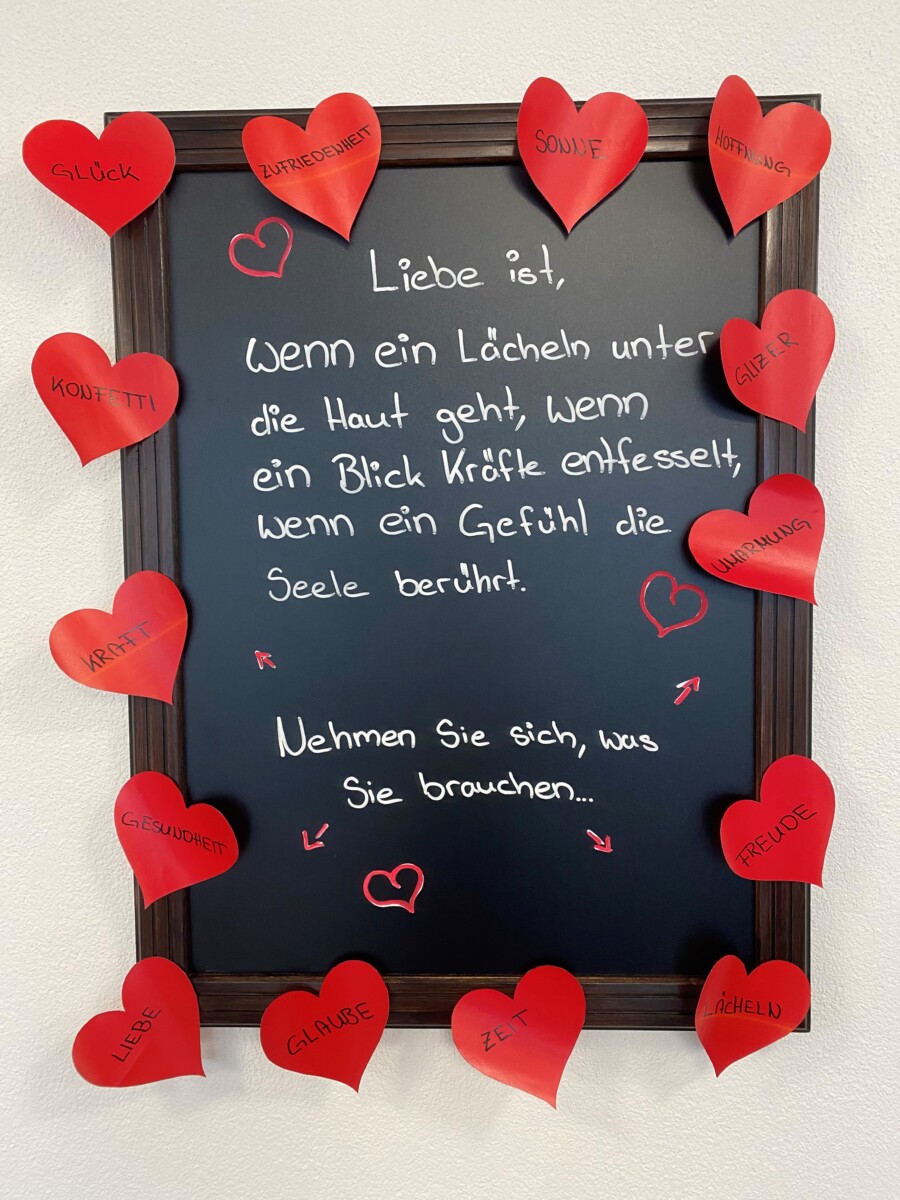 GLÜCK
ZUFRIEDENHEIT
SONNE
HOFFNUNG
Liebe ist,
wenn ein Lächeln unter
die Haut geht, wenn
ein Blick Kräfte entfesselt,
wenn ein Gefühl die
Seele berührt.
KONFETTI
GLIZER
UMARMUNG
KRAFT
Nehmen Sie sich, was
Sie brauchen...
GESUNDHEIT
FREUDE
LIEBE
GLAUBE
ZEIT
LÄCHELN